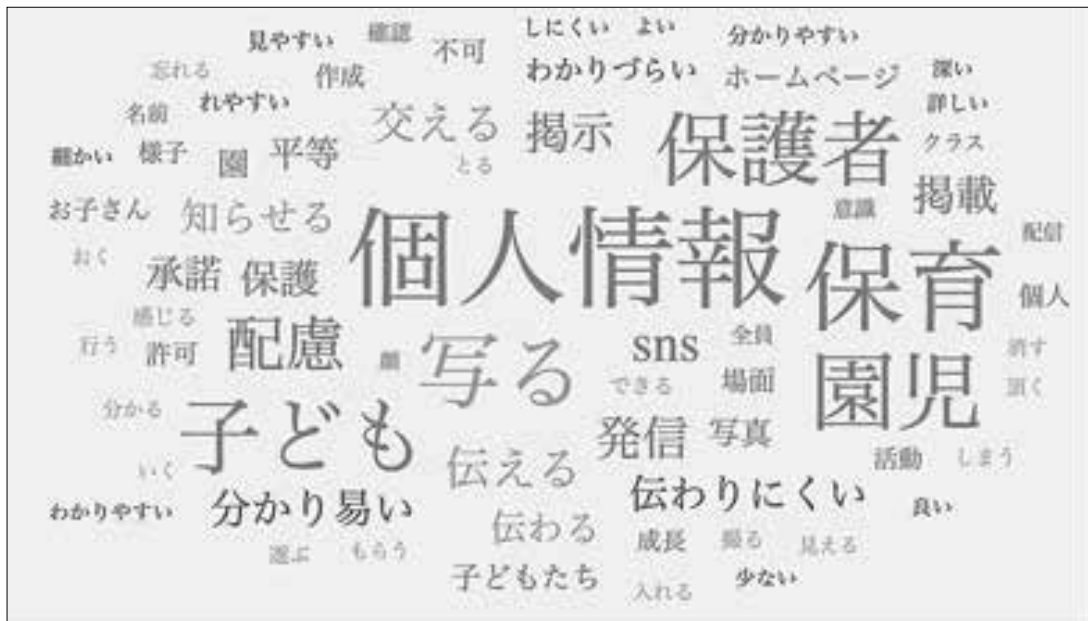 しにくい よい
見やすい 確認 不可 分かりやすい
忘れる 作成 わかりづらい ホームページ 深い
名前 れやすい 交える 掲示 保護者 詳しい
細かい 様子 園 平等 とる クラス
お子さん 知らせる 個人情報 意識 掲載
おく 承諾 保護 保育 配信
感じる 個人
行う 許可 配慮 顔 写る sns 全員 消す
できる 場面 園児 頂く
分かる 子ども 発信 写真
いく 伝える 活動 しまう
わかりやすい 分かり易い 伝わりにくい 良い
選ぶ もらう 伝わる 成長 撮る 見える
子どもたち 入れる 少ない